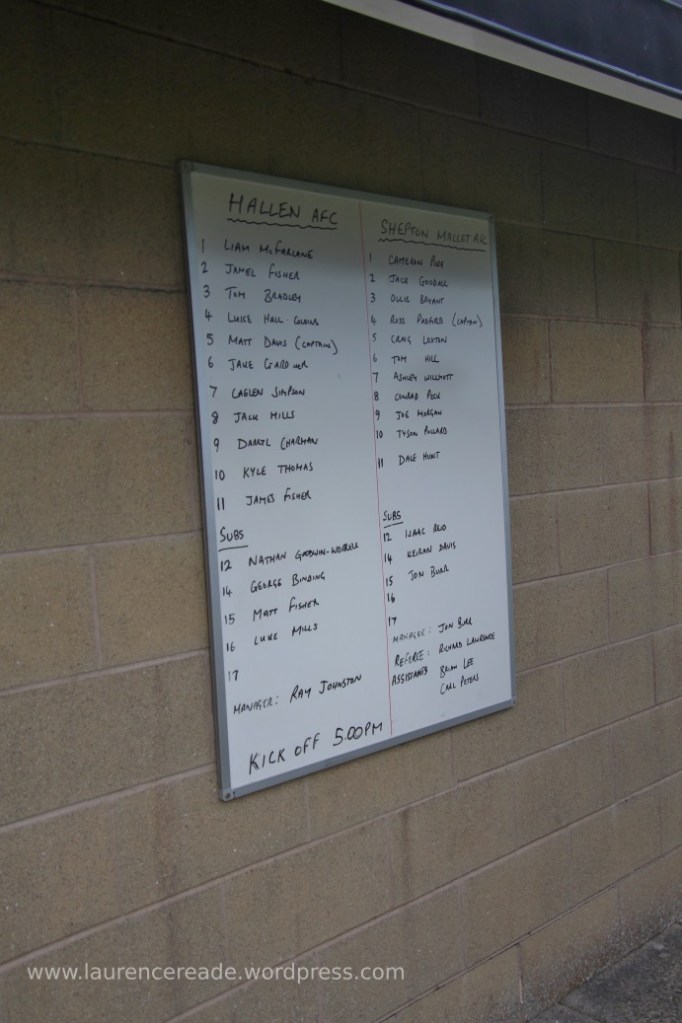 HALLEN AFC
1 LIAM McFARLANE
2 JAMEL FISHER
3 TOM BRADLEY
4 LUKE HALL-
5 MATT DAVIS (CAPTAIN)
6 JAKE GARDNER
7 CAELEN SIMPSON
8 JACK MILLS
9 DARRYL CHARMAN
10 KYLE THOMAS
11 JAMES FISHER
SUBS
12 NATHAN GOODWIN-WORRELL
14 GEORGE BINDING
15 MATT FISHER
16 LUKE MILLS
17
MANAGER: RAY JOHNSTON
KICK OFF 5.00PM
SHEPTON MALLET AFC
1 CAMERON
2 JACK GOODALL
3 OLLIE BRYANT
4 ROSS (CAPTAIN)
5 CRAIG LOXTON
6 TOM HILL
7 ASHLEY WILLMOTT
8 CONRAD PECK
9 JOE MORGAN
10 TYSON POLLARD
11 DALE HUNT
SUBS
12 ISAAC REID
14 KEIRAN DAVIS
15 JON BURR
16
17
MANAGER: JON BURR
REFEREE: RICHARD LAWRENCE
ASSISTANTS BRIAN LEE
CARL PETERS
www.laurencereade.wordpress.com